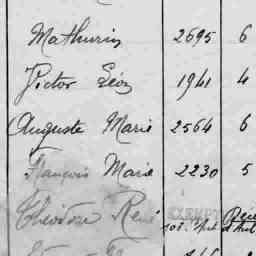 Mathurin 2695 6
Victor Léon 1941 4
Auguste Marie 2564 6
François Marie 2230 5
Théodore René EXEMPT